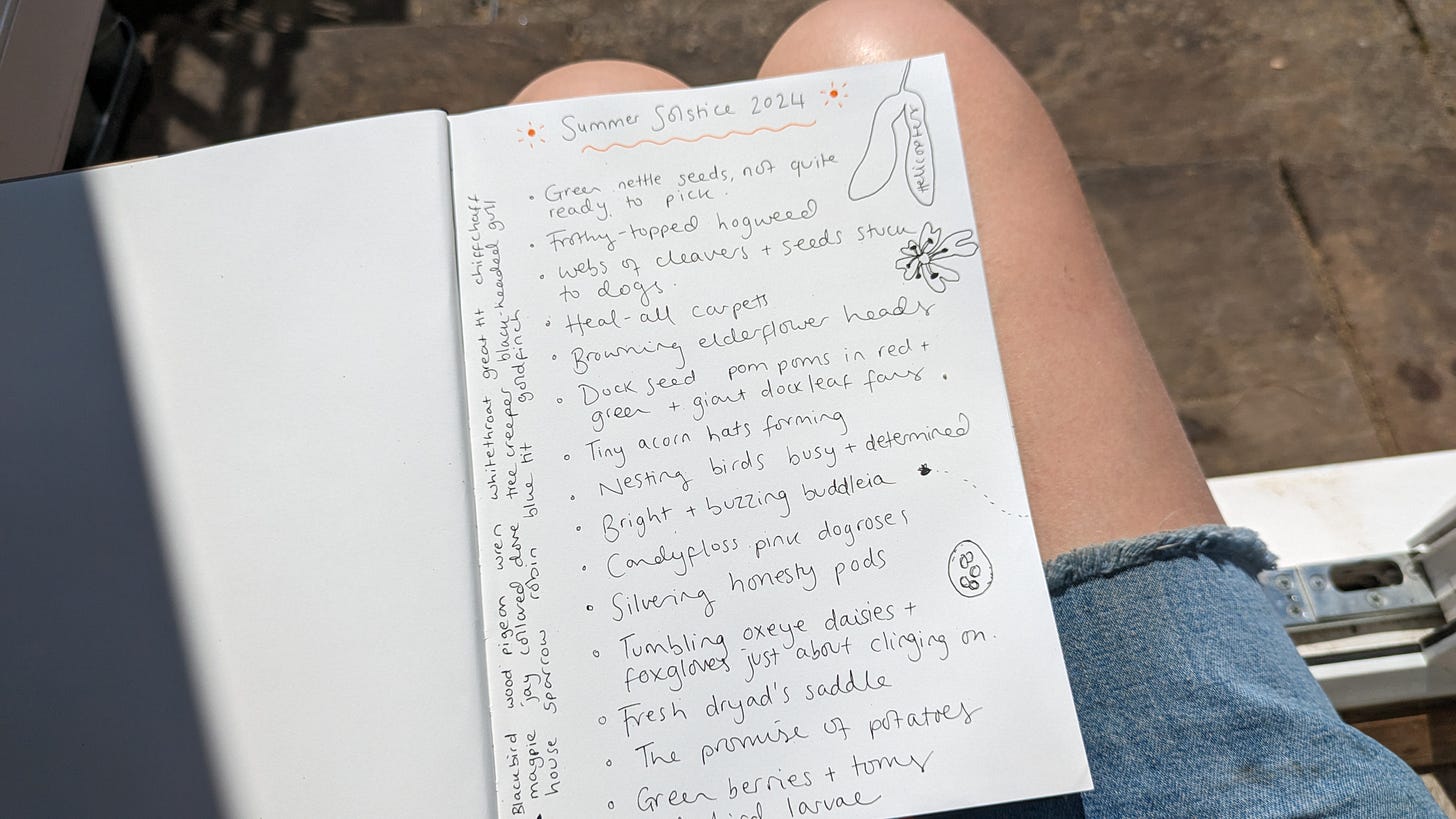 Summer Solstice 2024
Helicopters
• Green nettle seeds, not quite
ready to pick.
• Frothy-topped hogweed
• Webs of cleavers + seeds stuck
to dogs.
• Heal-all carpets
• Browning elderflower heads
• Dock seed pom poms in red +
green + giant dockleaf fans.
• Tiny acorn hats forming
• Nesting birds busy + determined
• Bright + buzzing buddleia
• Candyfloss pink dogroses
• Silvering honesty pods
• Tumbling oxeye daisies +
foxgloves just about clinging on.
• Fresh dryad's saddle
• The promise of potatoes
• Green berries + toms
larvae
Blackbird wood pigeon wren whitethroat great tit chiffchaff
magpie jay collared dove tree creeper black-headed gull
house sparrow robin blue tit goldfinch